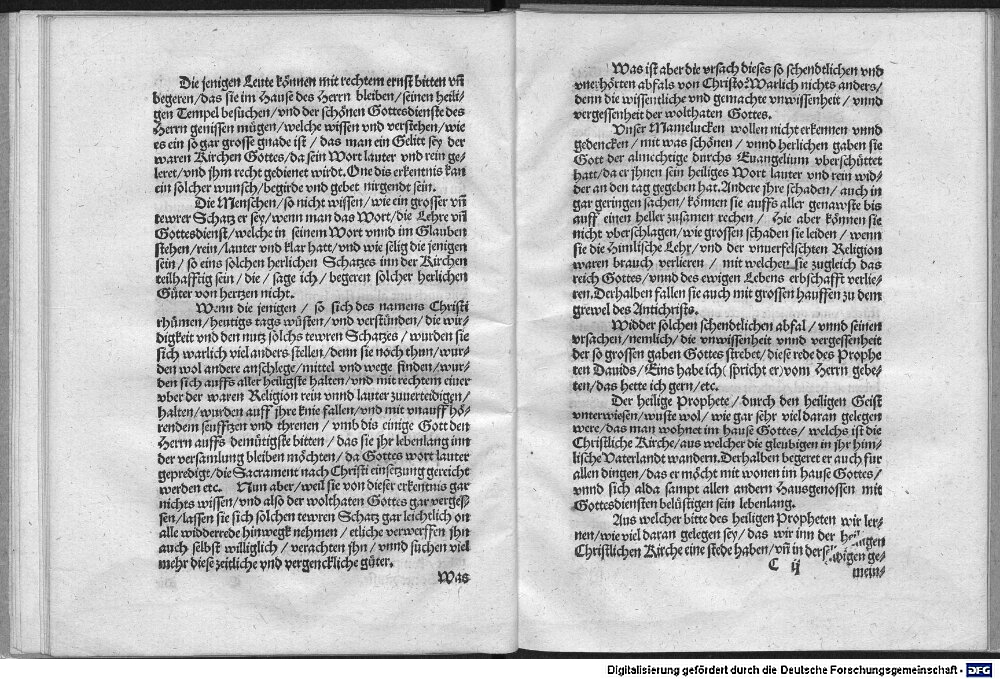 Die jenigen Leute können mit rechtem ernst bitten vñ
begeren/das sie im Hause des Herrn bleiben/seinen heili-
gen Tempel besuchen/vnd der schönen Gottesdienste des
Herrn genissen mügen/welche wissen vnd verstehen/wie
es ein so gar grosse gnade ist/das man ein Gelitt sey der
waren Kirchen Gottes/da sein Wort lauter vnd rein ge-
leret/vnd jhm recht gedienet wirdt. One dis erkentnis kan
ein solcher wunsch/begirde vnd gebet nirgendt sein.
Die Menschen/so nicht wissen/wie ein grosser vñ
tewrer Schatz er sey/wenn man das Wort/die Lehre vñ
Gottesdienst/welche in seinem Wort vnnd im Glauben
stehen/rein/lauter vnd klar hatt/vnd wie selig die jenigen
sein/so eins solchen herlichen Schatzes inn der Kirchen
teilhafftig sein/die/sage ich/begeren solcher herlichen
Güter von hertzen nicht.
Wenn die jenigen/so sich des namens Christi
rhümen/heutigs tags wüsten/vnd verstünden/die wir-
digkeit vnd den nutz solchs tewren Schatzes/wurden sie
sich warlich viel anders stellen/denn sie noch thun/wur-
den wol andere anschlege/mittel vnd wege finden/wur-
den sich auffs aller heiligste halten/vnd mit rechtem einer
vber der waren Religion rein vnnd lauter zuuerteidigen/
halten/wurden auff jhre knie fallen/vnd mit vnauff hö-
rendem seufftzen vnd threnen/vmb dis einige Gott den
Herrn auffs demütigste bitten/das sie jhr lebenlang inn
der versamlung bleiben möchten/da Gottes wort lauter
gepredigt/die Sacrament nach Christi einsetzung gereicht
werden etc. Nun aber/weil sie von dieser erkentnis gar
nichts wissen/vnd also der wolthaten Gottes gar verges-
sen/lassen sie sich solchen tewren Schatz gar leichtlich on
alle widderrede hinwegk nehmen/etliche verwerffen jhn
auch selbst williglich/verachten jhn/vnnd suchen viel
mehr diese zeitliche vnd vergenckliche güter.
Was
Was ist aber die vrsach dieses so schendtlichen vnd
vnerhörten abfals von Christo? Warlich nichts anders/
denn die wissentliche vnd gemachte vnwissenheit/vnnd
vergessenheit der wolthaten Gottes.
Vnser Mamelucken wollen nicht erkennen vnnd
gedencken/mit was schönen/vnnd herlichen gaben sie
Gott der almechtige durchs Euangelium vberschüttet
hatt/da er jhnen sein heiliges Wort lauter vnd rein wid-
der an den tag gegeben hat. Andere jhre schaden/auch in
gar geringen sachen/können sie auffs aller genawste bis
auff einen heller zusamen rechen/Hie aber können sie
nicht vberschlagen/wie grossen schaden sie leiden/wenn
sie die Himlische Lehr/vnd der vnuerfelschten Religion
waren brauch verlieren/mit welcher sie zugleich das
reich Gottes/vnnd des ewigen Lebens erbschafft verlie-
ren. Derhalben fallen sie auch mit grossen hauffen zu dem
grewel des Antichrists.
Widder solchen schendtlichen abfal/vnnd seinen
vrsachen/nemlich/die vnwissenheit vnnd vergessenheit
der so grossen gaben Gottes strebet/diese rede des Prophe
ten Dauids/Eins habe ich (spricht er) vom Herrn gebe-
ten/das hette ich gern/etc.
Der heilige Prophete/durch den heiligen Geist
vnterwiesen/wuste wol/wie gar sehr viel daran gelegen
were/das man wohnet im hause Gottes/welchs ist die
Christliche Kirche/aus welcher die gleubigen in jhr him-
lische Vaterlandt wandern. Derhalben begeret er auch fur
allen dingen/das er möcht mit wonen im hause Gottes/
vnnd sich alda sampt allen andern Hausgenossen mit
Gottesdiensten belüstigen sein lebenlang.
Aus welcher bitte des heiligen Propheten wir ler-
nen/wie viel daran gelegen sey/das wir inn der heiligen
Christlichen Kirche eine stede haben/vñ in derselbigen ge-
C ij
mein-
Digitalisierung gefördert durch die Deutsche Forschungsgemeinschaft - DFG